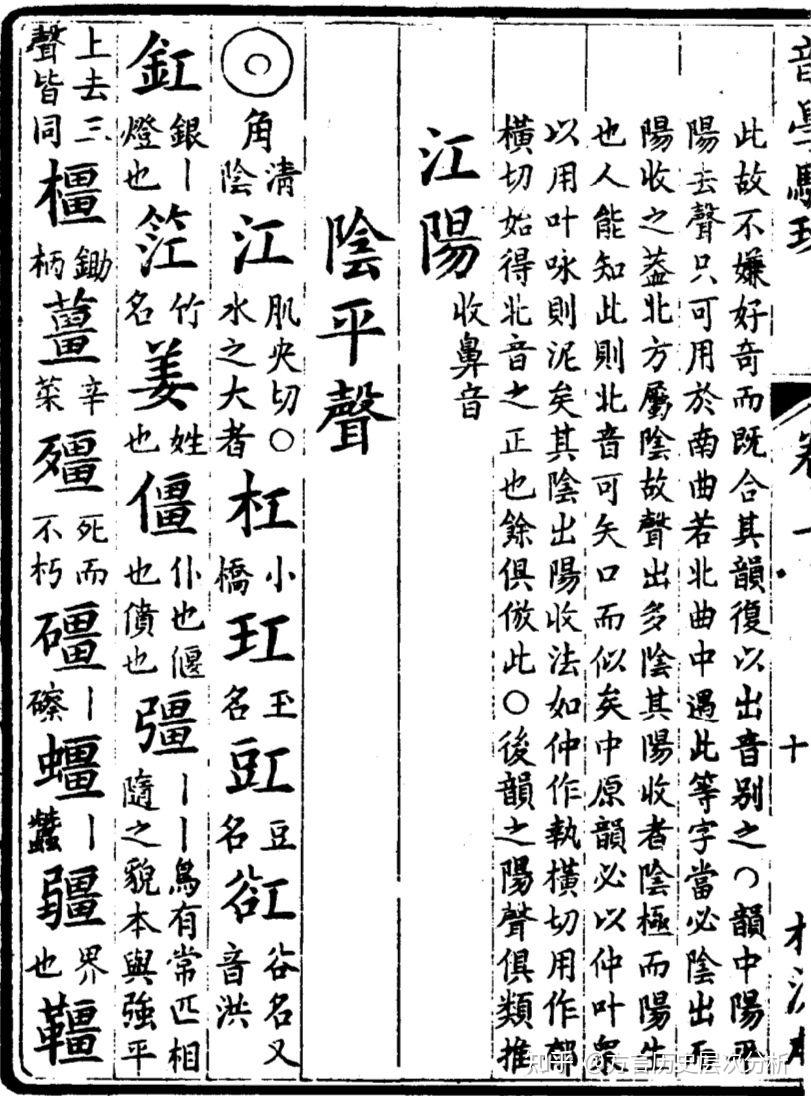 音學驗
卷一
十
此故不嫌好奇而旣合其韻復以出音别之○韻中陽平
陽去聲只可用於南曲若北曲中遇此等字當必陰出而
陽收之葢北方屬陰故聲出多陰其陽收者陰極而陽生
也人能知此則北音可矢口而似矣中原韻必以仲叶衆
以用叶咏則泥矣其陰出陽收法如仲作執横切用作
横切始得北音之正也餘俱倣此○後韻之陽聲俱類推
江陽收鼻音
陰平聲
◎角清陰江肌央切○水之大者杠小橋玒玉名豇豆名谾谷名又音洪
釭銀丨燈也笁竹名姜姓也僵仆也偃也僨也彊丨丨鳥有常匹相隨之貌本與強平
上去三聲皆同橿鋤柄薑辛菜殭死而不朽礓丨礤蠮丨蠶疆界也韁
知乎 @方言历史层次分析